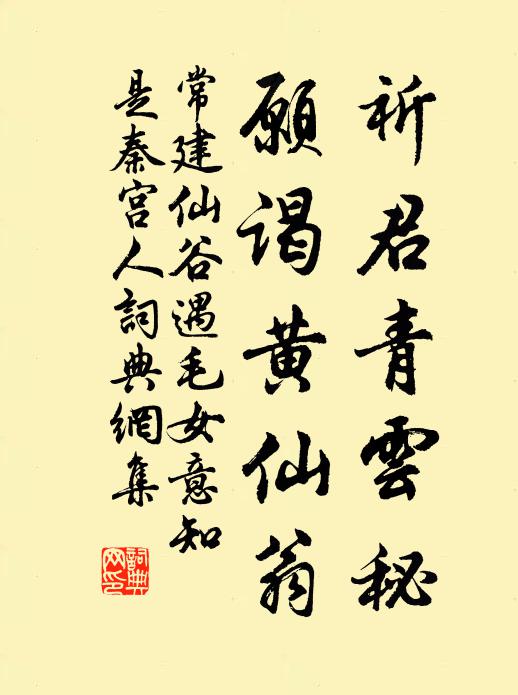 祈君青雲秘
願謁黄仙翁
常建仙谷遇毛女意知
是秦宫人詞典網集
詞典
网印